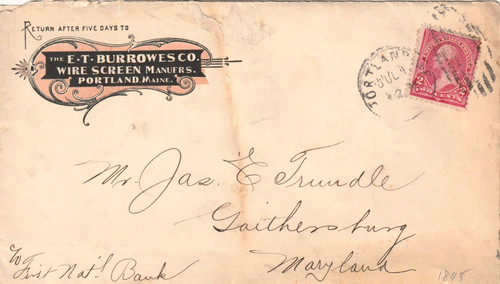 RETURN AFTER FIVE DAYS TO
THE E.T. BURROWES CO.
WIRE SCREEN MANUFRS.
PORTLAND, MAINE.
PORTLAND
2
TWO CENTS
Mr. Jas. E Trundle
Gaithersburg
Maryland
c/o First Nat'l Bank
1895